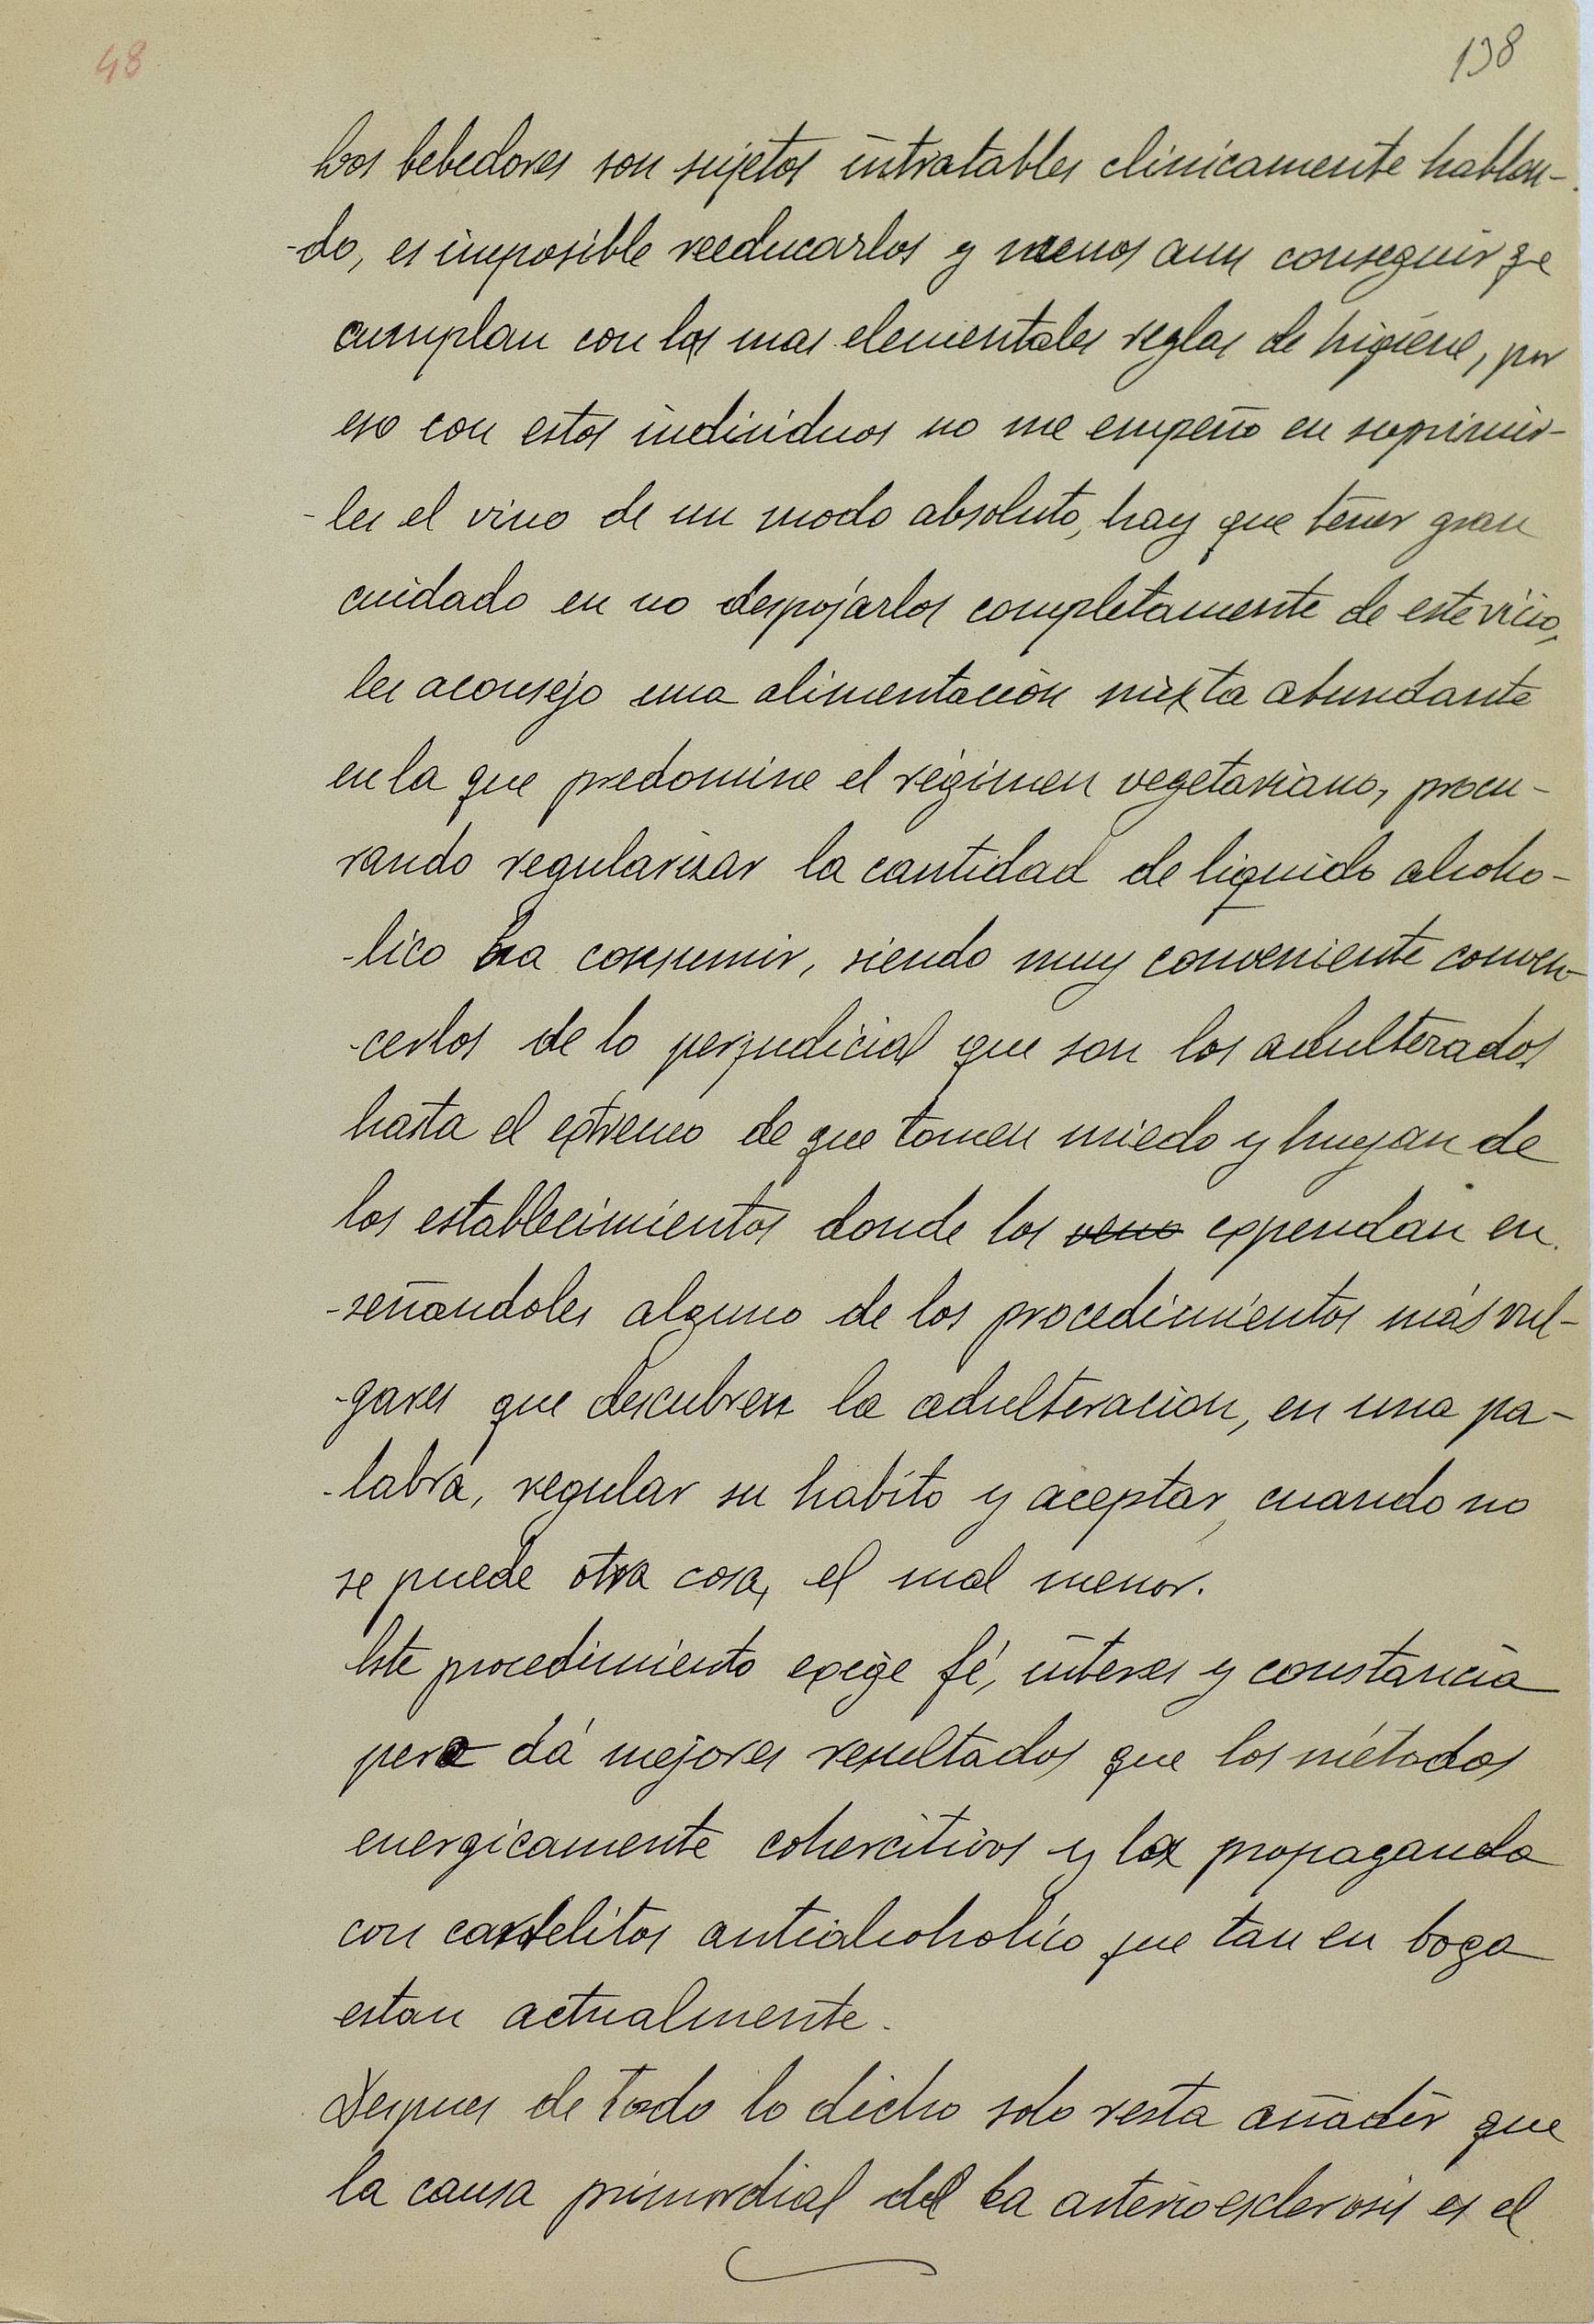 48
138
Los bebedores son sujetos intratables clinicamente hablan-
-do, es imposible reeducarlos y menos aun conseguir qe
cumplan con las mas elementales reglas de higiene, por
eso con estos individuos no me empeño en suprimir-
-les el vino de un modo absoluto, hay que tener gran
cuidado en no despojarlos completamente de este vicio,
les aconsejo una alimentación mixta abundante
en la que predomine el régimen vegetariano, procu-
rando regularizar la cantidad de liquido alcoho-
-lico a consumir, siendo muy conveniente conven-
-cerlos de lo perjudicial que son los adulterados
hasta el extremo de que tomen miedo y huyan de
los establecimientos donde los expendan en
-señandoles alguno de los procedimientos más vul-
-gares que descubren la adulteracion, en una pa-
-labra, regular su habito y aceptar, cuando no
se puede otra cosa, el mal menor.
Este procedimiento exige fé, interes y constancia
pero dá mejores resultados que los métodos
energicamente cohercitivos y la propaganda
con cartelitos antialcoholico que tan en boga
estan actualmente.
Despues de todo lo dicho solo resta añadir que
la causa primordial de la arterioesclerosis es el